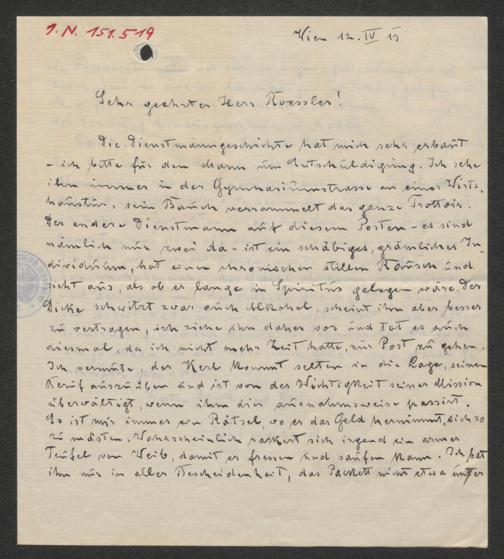 I. N. 151.519
Wien 12. IV 15
Sehr geehrter Herr Roessler!
Die Dienstmanngeschichte hat mich sehr erbaut
- ich bitte für den Mann um Entschuldigung. Ich sehe
ihn immer in der Gymnasiumstrasse an einer Wirts-
haustür, sein Bauch verrammelt das ganze Trottoir.
Der andere Dienstmann auf diesem Posten - es sind
nämlich nur zwei da - ist ein schäbiges, grämliches In-
dividuum, hat einen chronischen stillen Rausch und
sieht aus, als ob er lange in Spiritus gelegen wäre. Der
Dicke schwitzt zwar auch Alkohol, scheint ihn aber besser
zu vertragen, ich ziehe ihn daher vor und tat es auch
diesmal, da ich nicht mehr Zeit hatte, zur Post zu gehen.
Ich vermute, der Kerl kommt selten in die Lage, seinen
Beruf auszuüben und ist von der Wichtigkeit seiner Mission
überwältigt, wenn ihm dies ausnahmsweise passiert.
Es ist mir immer ein Rätsel, wo er das Geld hernimmt, sich so
zu mästen. Wahrscheinlich rackert sich irgend ein armer
Teufel von Weib, damit er fressen und saufen kann. Ich bat
ihn nur in aller Bescheidenheit, das Packett nicht etwa unter